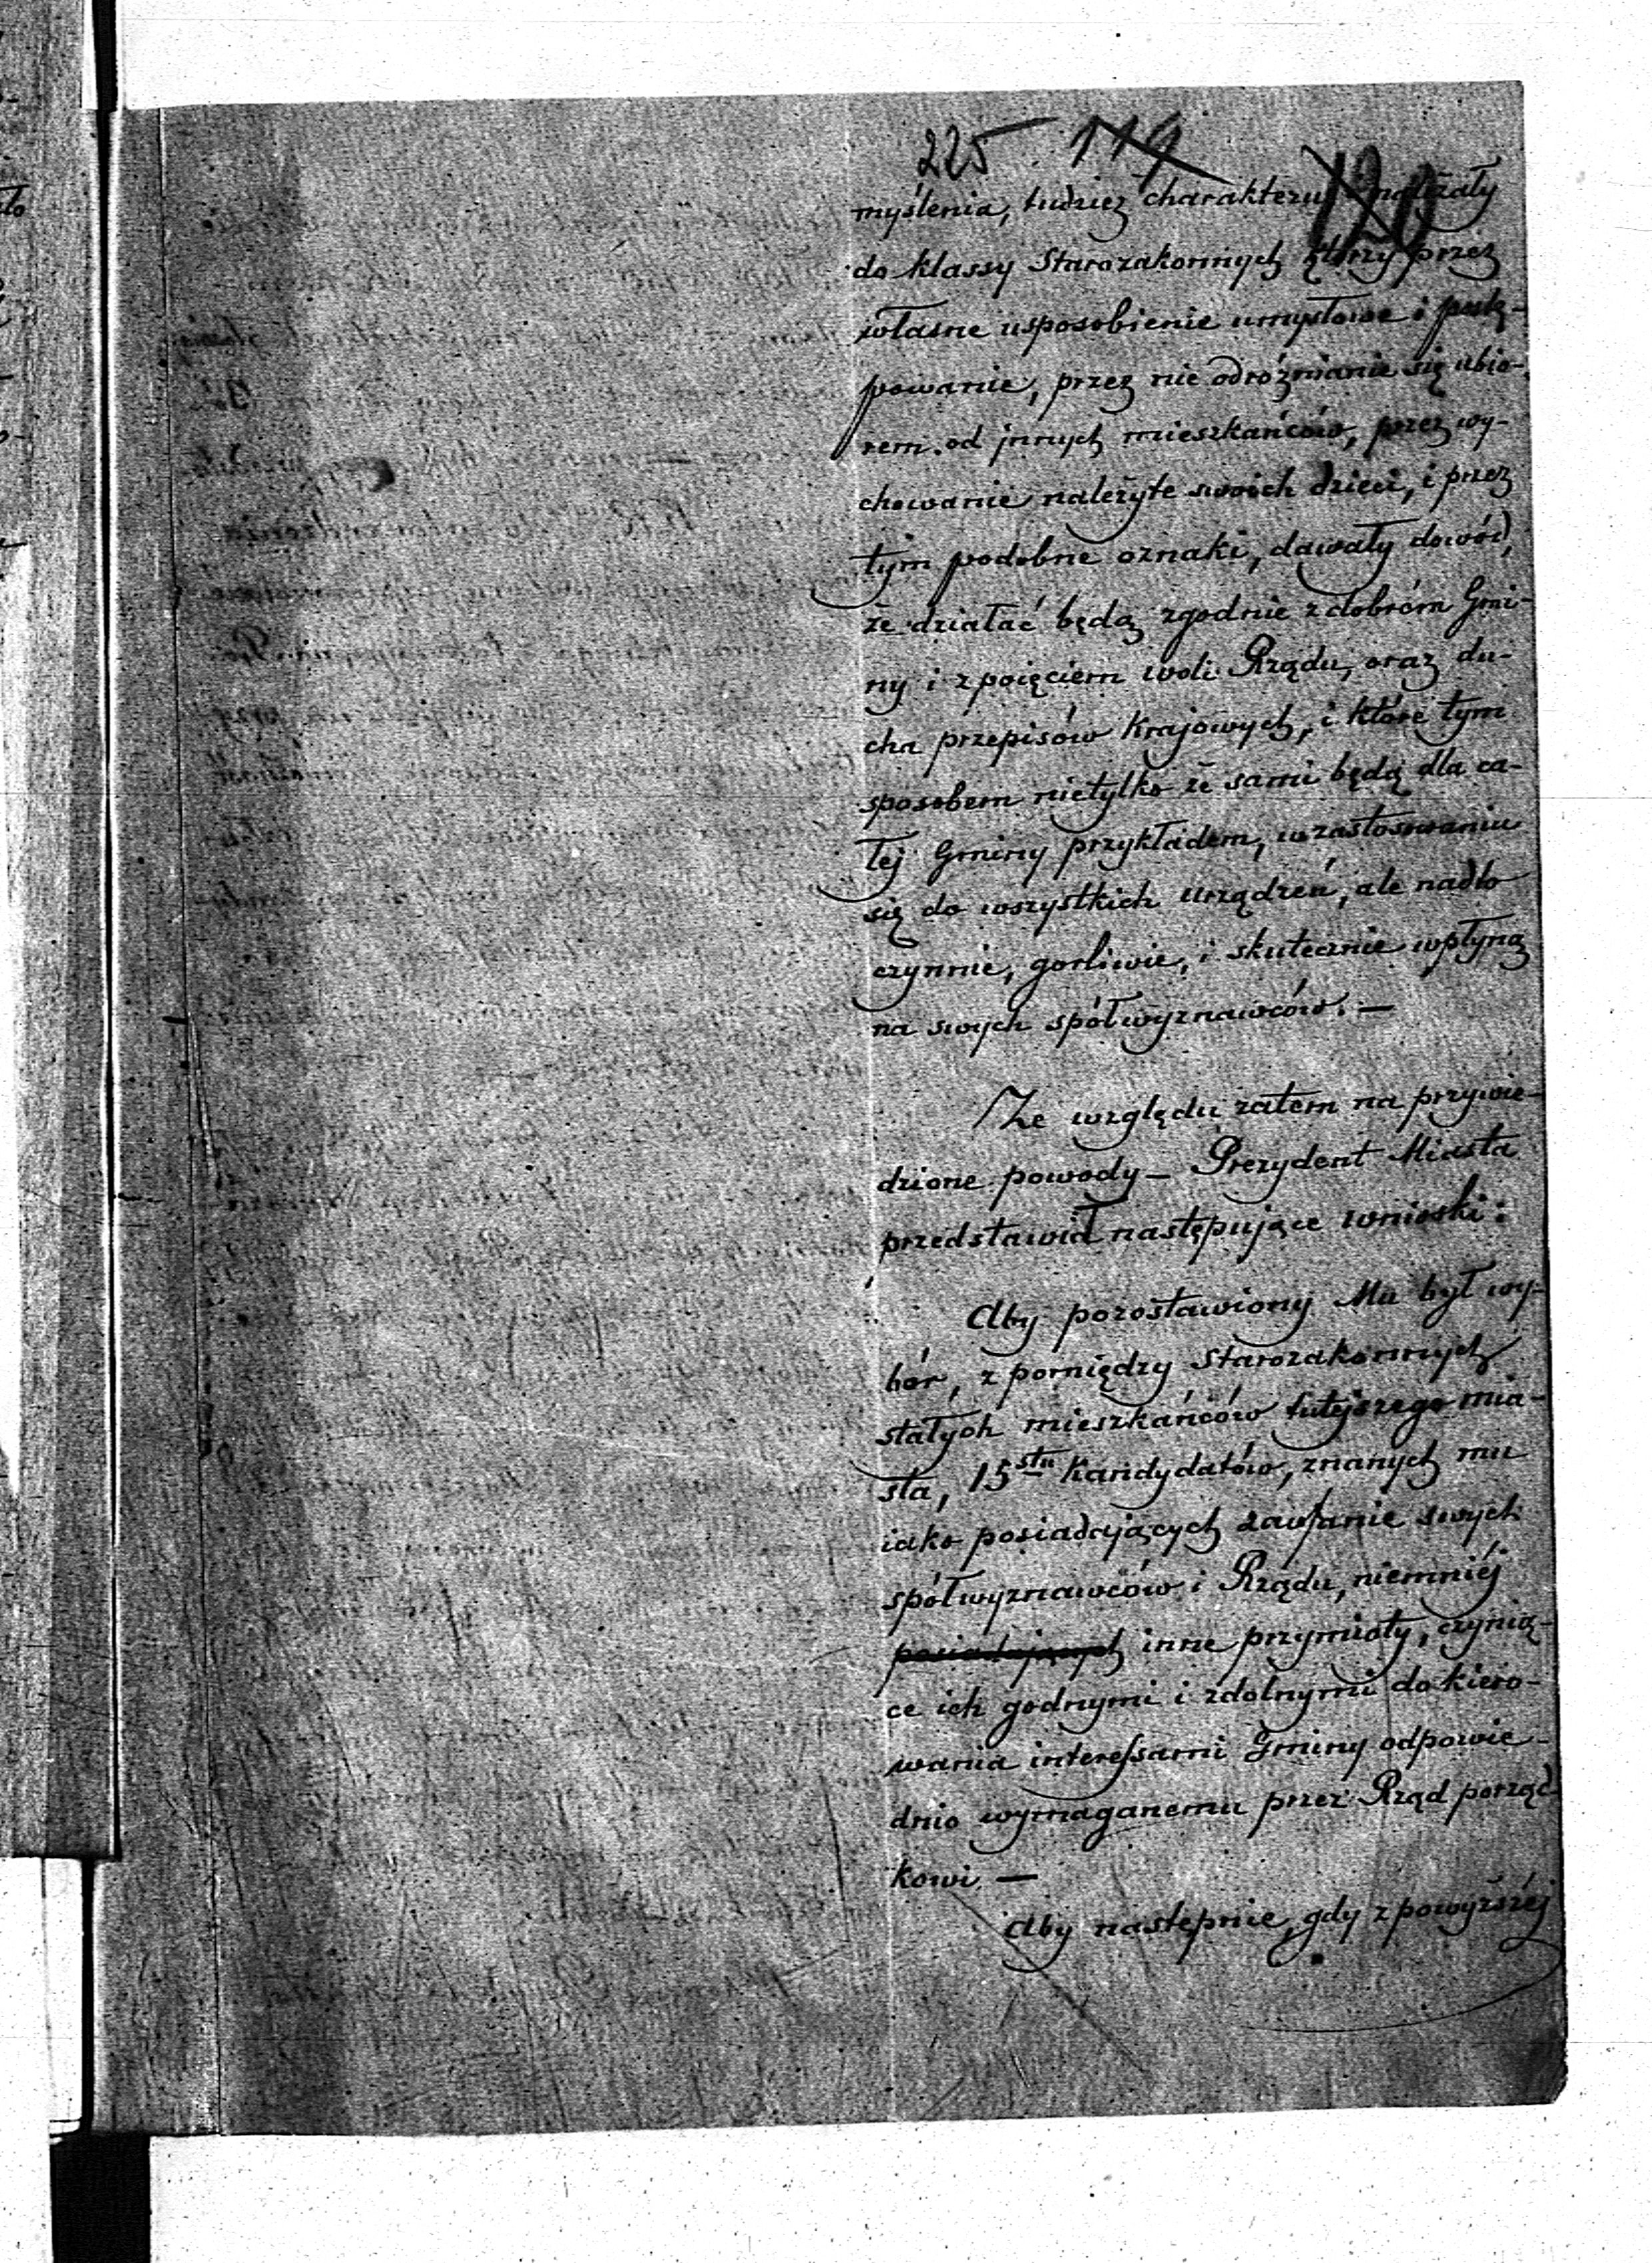 225 119
120
myślenia, tudzież charakteru należały
do klassy Starozakonnych którzy przez
własne usposobienie umysłowe i postę-
powanie, przez nie odróżnianie się ubio-
rem od jnnych mieszkańców, przez wy-
chowanie należyte swoich dzieci, i przez
tym podobne oznaki, dawały dowód,
że działać będą zgodnie z dobrém Gmi-
ny i z poięciem woli Rządu, oraz du-
cha przepisów Krajowych, i które tym
sposobem nietylko że sami będą dla ca-
łej Gminy przykładem, w zastosowaniu
się do wszystkich urządzeń, ale nadto
czynnie, gorliwie, i skutecznie wpłyną
na swych spółwyznawców. —
Ze względu zatem na przywie-
dzione powody — Prezydent Miasta
przedstawił następujące wnioski:
Aby pozostawiony Mu był wy-
bór, z pomiędzy Starozakonnych
stałych mieszkańców tutejszego mia-
sta, 15stu Kandydatów, znanych mu
iako posiadających zaufanie swych
spółwyznawców i Rządu, niemniéj
posiadających inne przymioty, czynią-
ce ich godnymi i zdolnymi do kiero-
wania interessami Gminy odpowie-
dnio wymaganemu przez Rząd porząd-
kowi —
Aby następnie, gdy z powyższéj